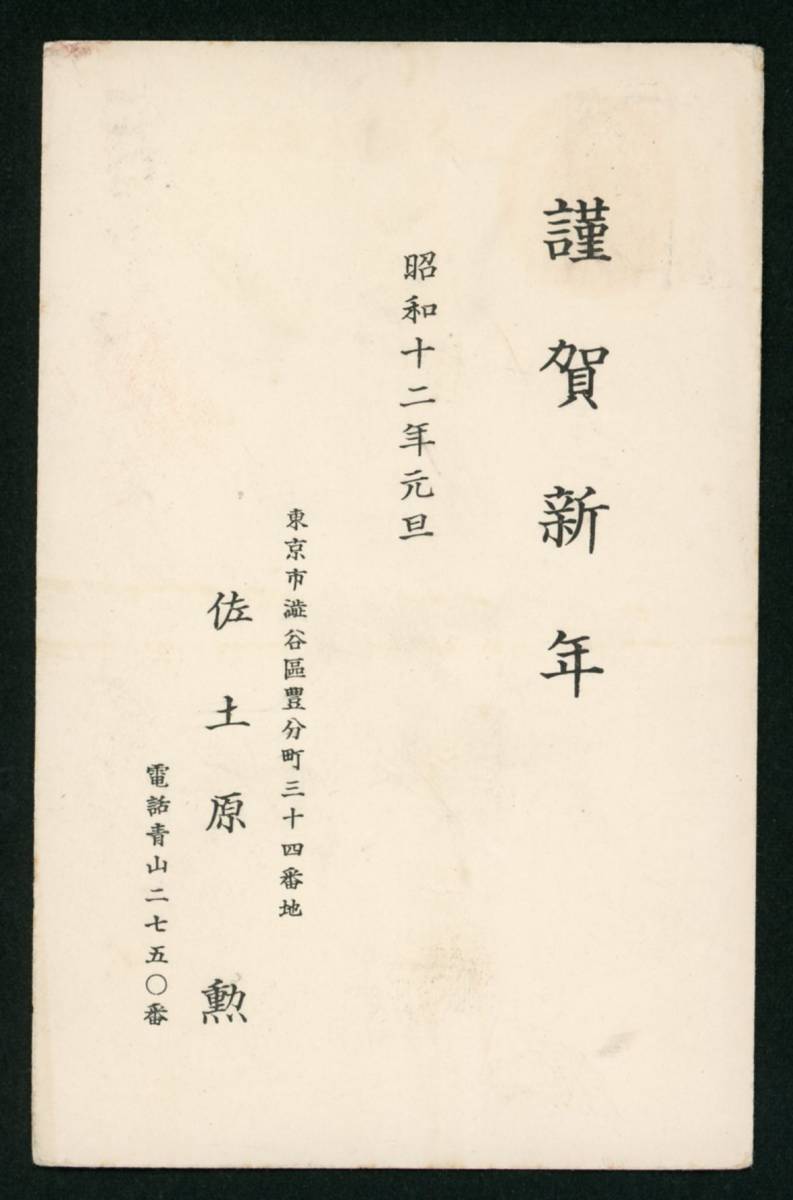 謹賀新年
昭和十二年元旦
東京市澁谷區豊分町三十四番地
佐土原勲
電話青山二七五〇番